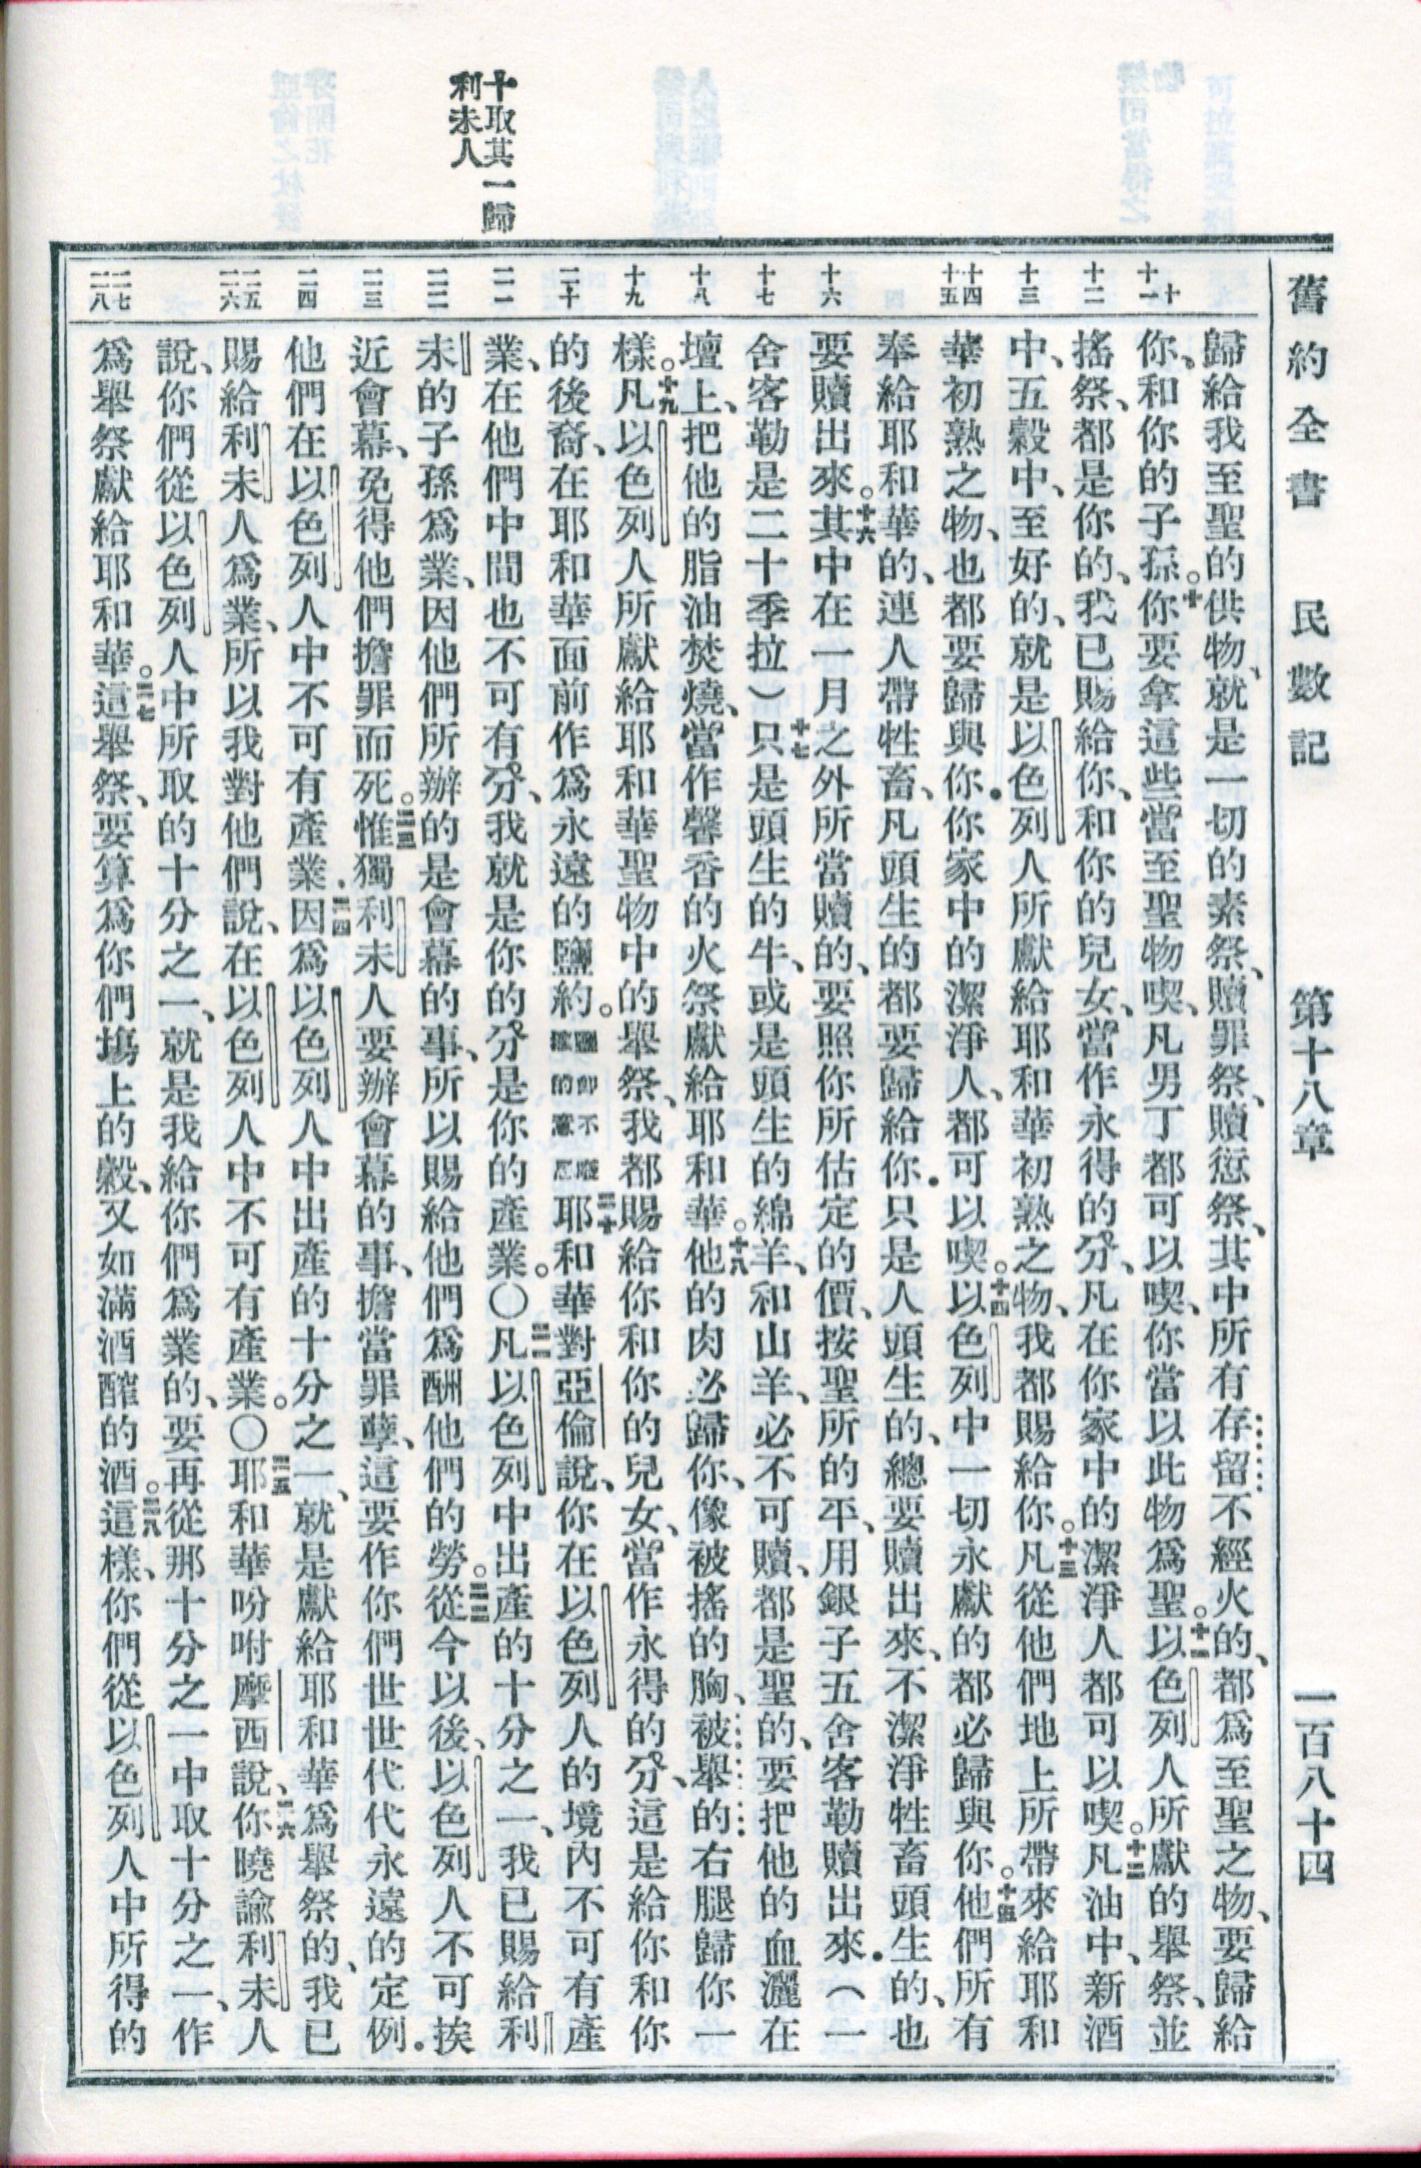 舊約全書　民數記　第十八章　一百八十四
十取其一歸
利未人
十
十一
十二
十三
十四
十五
十六
十七
十八
十九
二十
二一
二二
二三
二四
二五
二六
二七
二八
歸給我至聖的供物、就是一切的素祭、贖罪祭、贖愆祭、其中所有存留不經火的、都爲至聖之物、要歸給
你、和你的子孫。十你要拿這些當至聖物喫、凡男丁都可以喫、你當以此物爲聖。十一以色列人所獻的舉祭、並
搖祭、都是你的、我已賜給你、和你的兒女、當作永得的分、凡在你家中的潔淨人都可以喫。十二凡油中、新酒
中、五穀中、至好的、就是以色列人所獻給耶和華初熟之物、我都賜給你。十三凡從他們地上所帶來給耶和
華初熟之物、也都要歸與你．你家中的潔淨人、都可以喫。十四以色列中一切永獻的都必歸與你。十五他們所有
奉給耶和華的、連人帶牲畜、凡頭生的都要歸給你．只是人頭生的、總要贖出來、不潔淨牲畜頭生的、也
要贖出來。十六其中在一月之外所當贖的、要照你所估定的價、按聖所的平、用銀子五舍客勒贖出來．（一
舍客勒是二十季拉）十七只是頭生的牛、或是頭生的綿羊、和山羊、必不可贖、都是聖的、要把他的血灑在
壇上、把他的脂油焚燒、當作馨香的火祭獻給耶和華。十八他的肉必歸你、像被搖的胸、被舉的右腿歸你一
樣。十九凡以色列人所獻給耶和華聖物中的舉祭、我都賜給你和你的兒女、當作永得的分、這是給你和你
的後裔、在耶和華面前作爲永遠的鹽約。鹽即不廢壞的意思二十耶和華對亞倫說、你在以色列人的境內不可有產
業、在他們中間也不可有分、我就是你的分、是你的產業。〇二一凡以色列中出產的十分之一、我已賜給利
未的子孫爲業、因他們所辦的是會幕的事、所以賜給他們爲酬他們的勞。二二從今以後、以色列人不可挨
近會幕、免得他們擔罪而死。二三惟獨利未人要辦會幕的事、擔當罪孽、這要作你們世世代代永遠的定例．
他們在以色列人中不可有產業．二四因爲以色列人中出產的十分之一、就是獻給耶和華爲舉祭的、我已
賜給利未人爲業、所以我對他們說、在以色列人中不可有產業。〇二五耶和華吩咐摩西說、二六你曉諭利未人
說、你們從以色列人中所取的十分之一、就是我給你們爲業的、要再從那十分之一中取十分之一、作
爲舉祭獻給耶和華。二七這舉祭、要算爲你們場上的穀、又如滿酒醡的酒。二八這樣、你們從以色列人中所得的